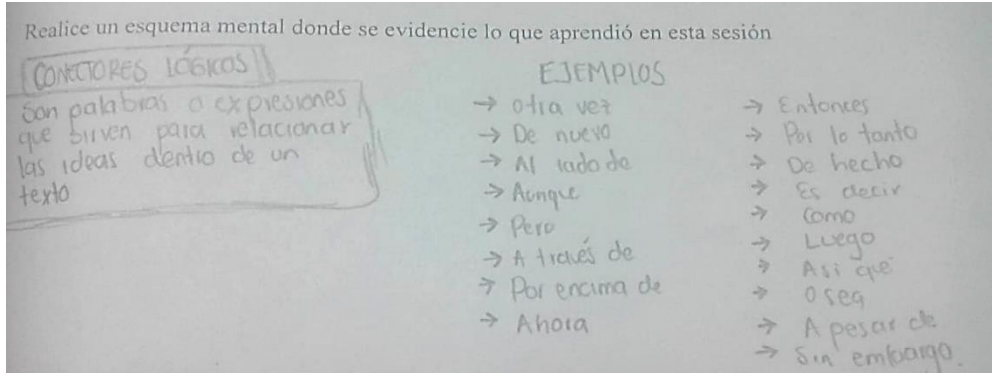 Realice un esquema mental donde se evidencie lo que aprendió en esta sesión
CONECTORES LÓGICOS
Son palabras o expresiones
que sirven para relacionar
las ideas dentro de un
texto
EJEMPLOS
→ otra vez
→ De nuevo
→ Al lado de
→ Aunque
→ Pero
→ A través de
→ Por encima de
→ Ahora
→ Entonces
→ Por lo tanto
→ De hecho
→ Es decir
→ Como
→ Luego
→ Asi que
→ O sea
→ A pesar de
→ Sin embargo.